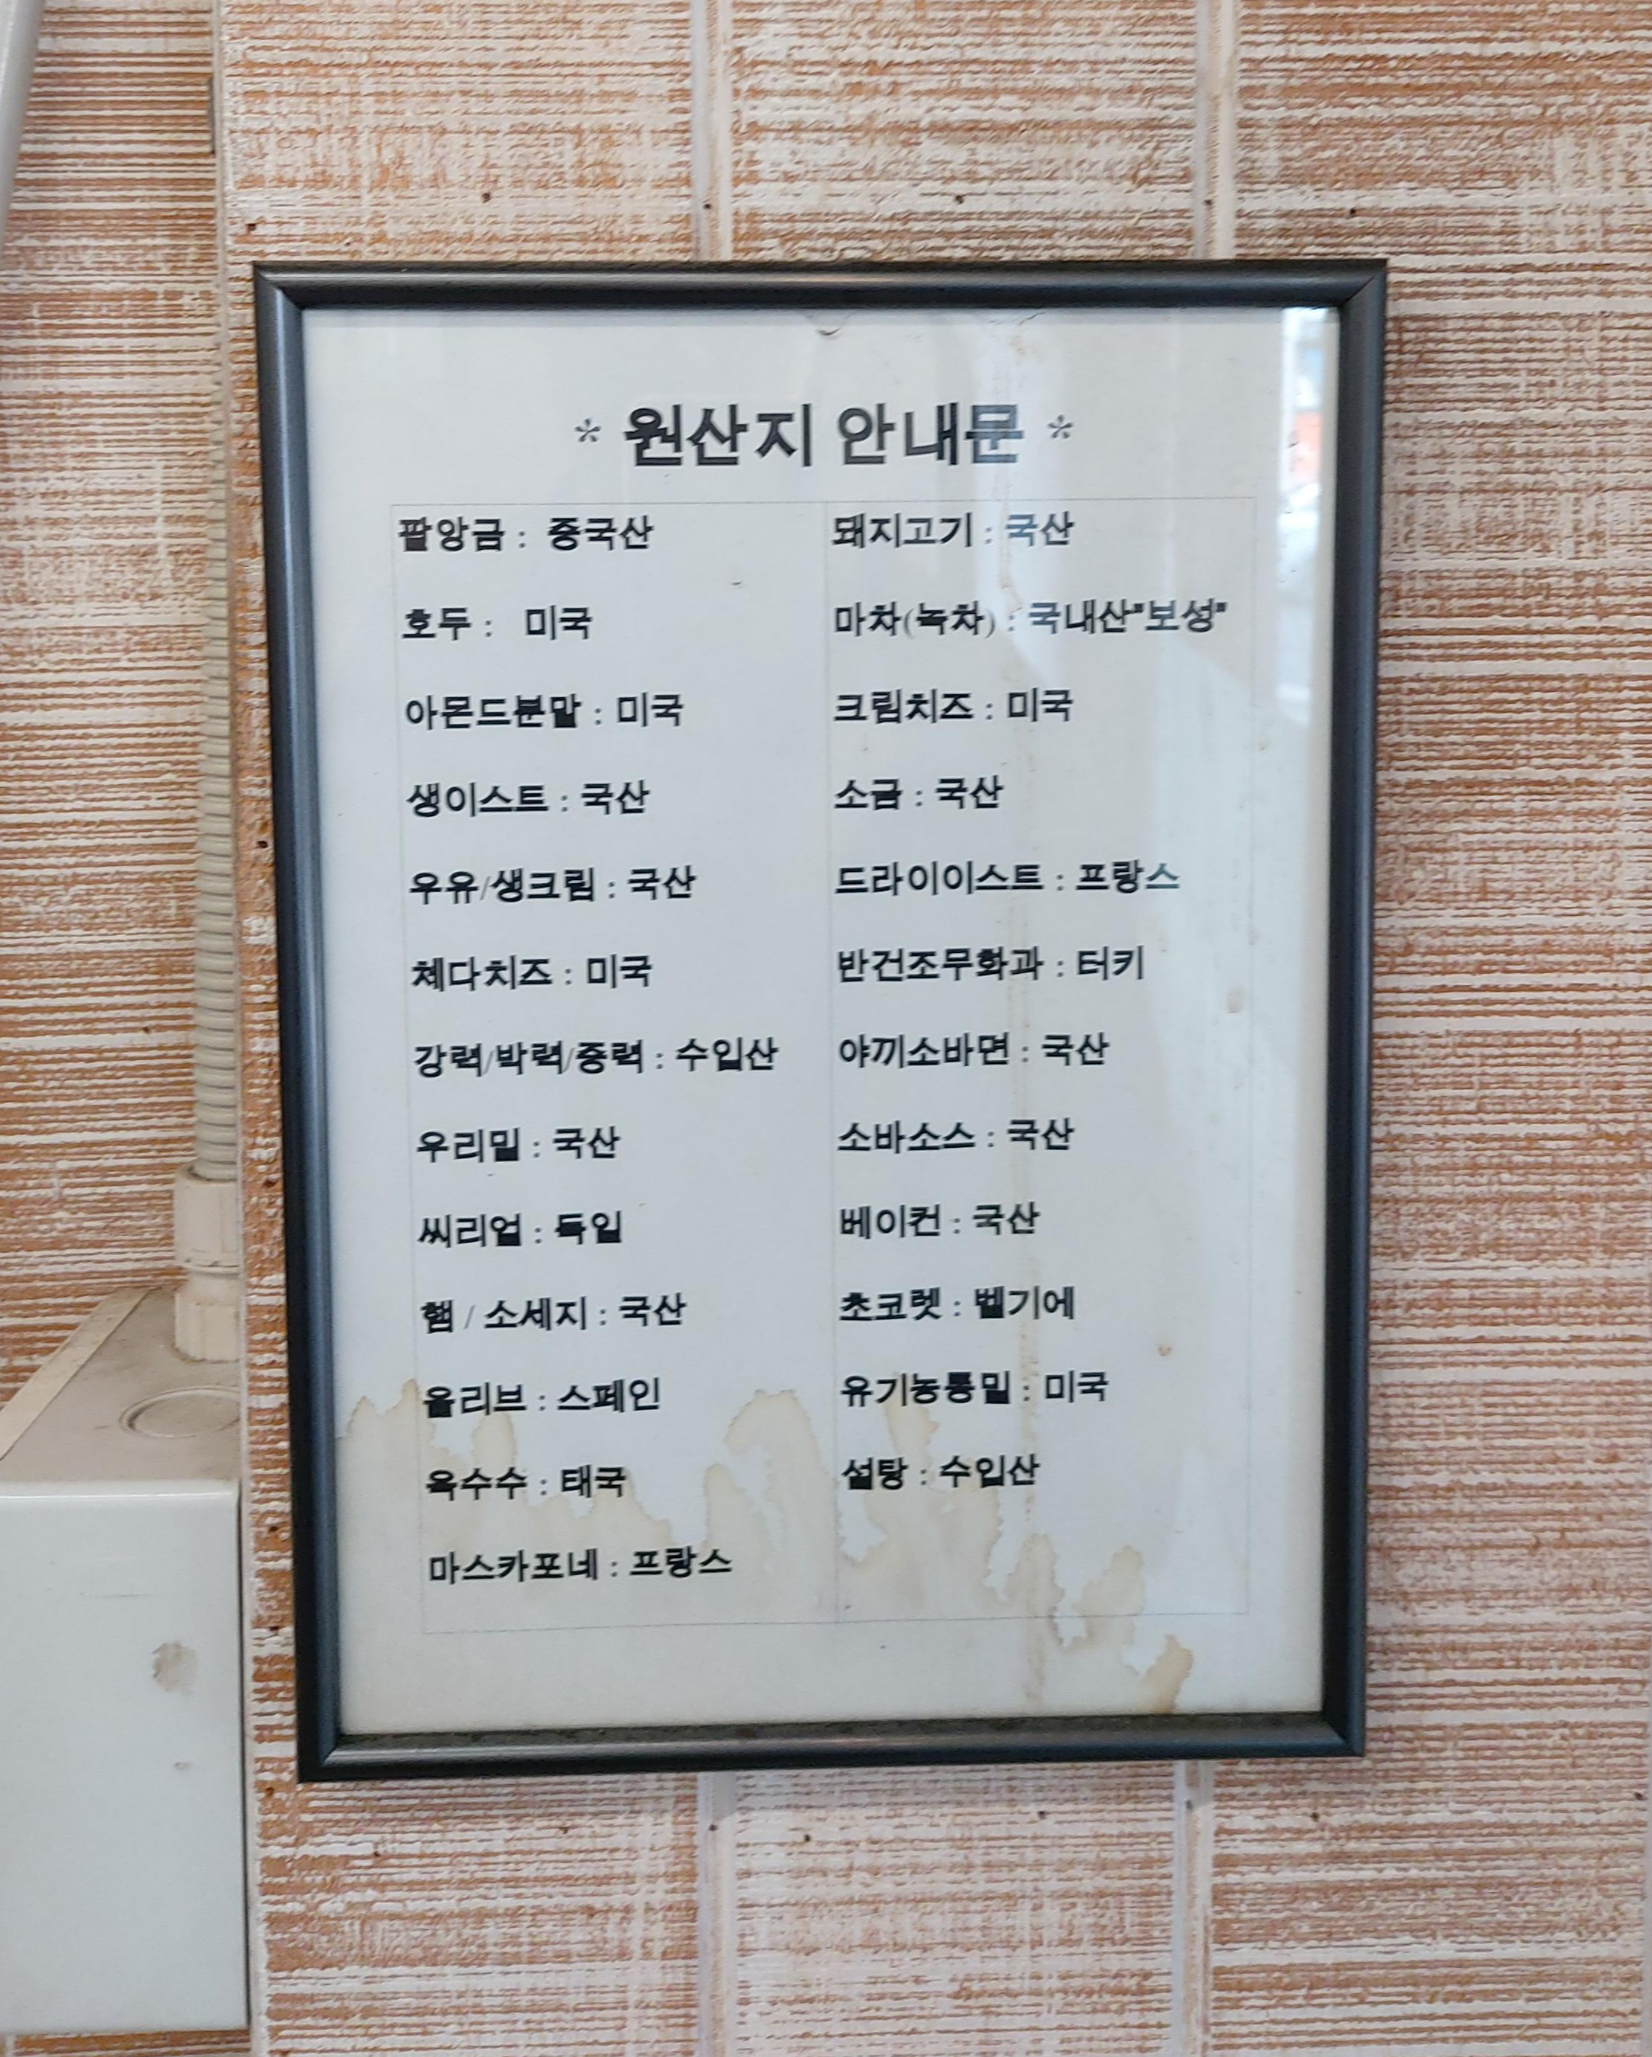 * 원산지 안내문 *
팥앙금 : 중국산
호두 : 미국
아몬드분말 : 미국
생이스트 : 국산
우유/생크림 : 국산
체다치즈 : 미국
강력/박력/중력 : 수입산
우리밀 : 국산
씨리얼 : 독일
햄 / 소세지 : 국산
올리브 : 스페인
옥수수 : 태국
마스카포네 : 프랑스
돼지고기 : 국산
마차(녹차) : 국내산"보성"
크림치즈 : 미국
소금 : 국산
드라이이스트 : 프랑스
반건조무화과 : 터키
야끼소바면 : 국산
소바소스 : 국산
베이컨 : 국산
초코렛 : 벨기에
유기농통밀 : 미국
설탕 : 수입산